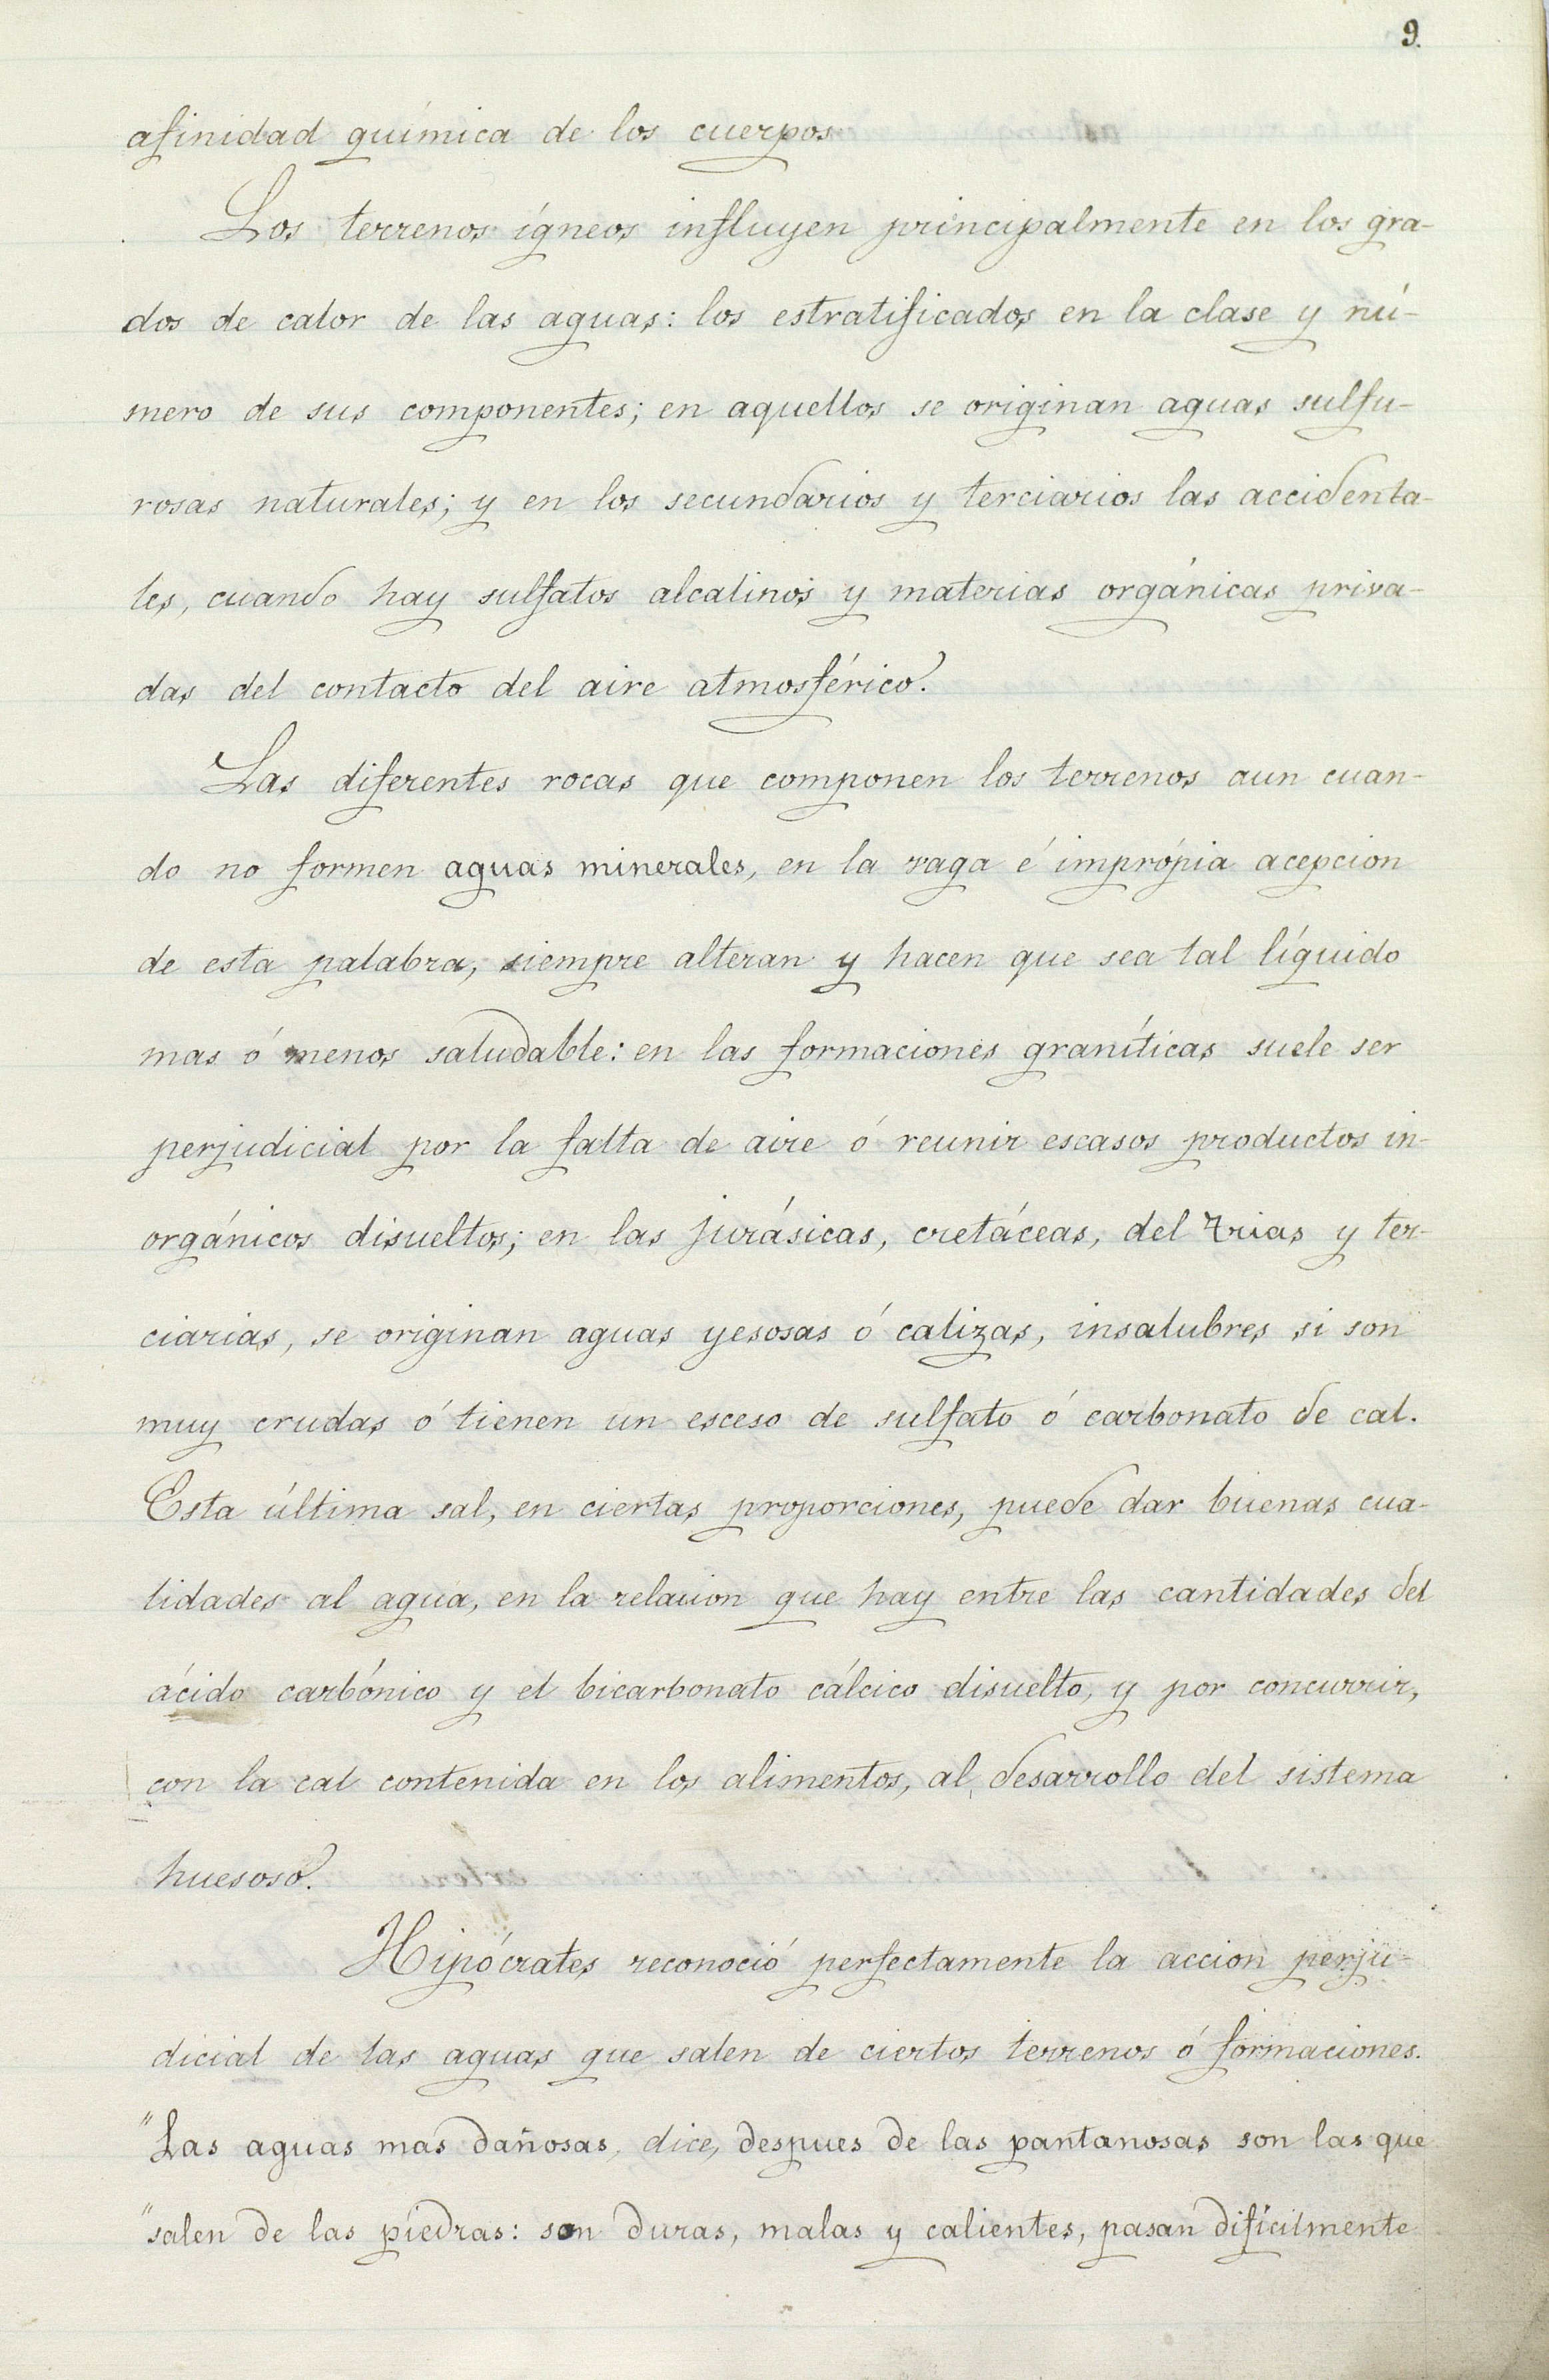 9.
afinidad química de los cuerpos
Los terrenos ígneos influyen principalmente en los gra-
dos de calor de las aguas: los estratificados en la clase y nú-
mero de sus componentes; en aquellos se originan aguas sulfu-
rosas naturales; y en los secundarios y terciarios las accidenta-
les, cuando hay sulfatos alcalinos y materias orgánicas priva-
das del contacto del aire atmosférico.
Las diferentes rocas que componen los terrenos aun cuan-
do no formen aguas minerales, en la vaga é imprópia acepcion
de esta palabra, siempre alteran y hacen que sea tal líquido
mas ó menos saludable: en las formaciones graníticas suele ser
perjudicial por la falta de aire ó reunir escasos productos in-
orgánicos disueltos; en las jurásicas, cretáceas, del Trias y ter-
ciarias, se originan aguas yesosas ó calizas, insalubres si son
muy crudas ó tienen un esceso de sulfato ó carbonato de cal.
Esta última sal, en ciertas proporciones, puede dar buenas cua-
lidades al agua, en la relacion que hay entre las cantidades del
ácido carbónico y el bicarbonato cálcico disuelto, y por concurrir,
con la cal contenida en los alimentos, al desarrollo del sistema
huesoso.
Hipócrates reconoció perfectamente la accion perju-
dicial de las aguas que salen de ciertos terrenos ó formaciones.
"Las aguas mas dañosas, dice, despues de las pantanosas son las que
"salen de las piedras: son duras, malas y calientes, pasan difícilmente